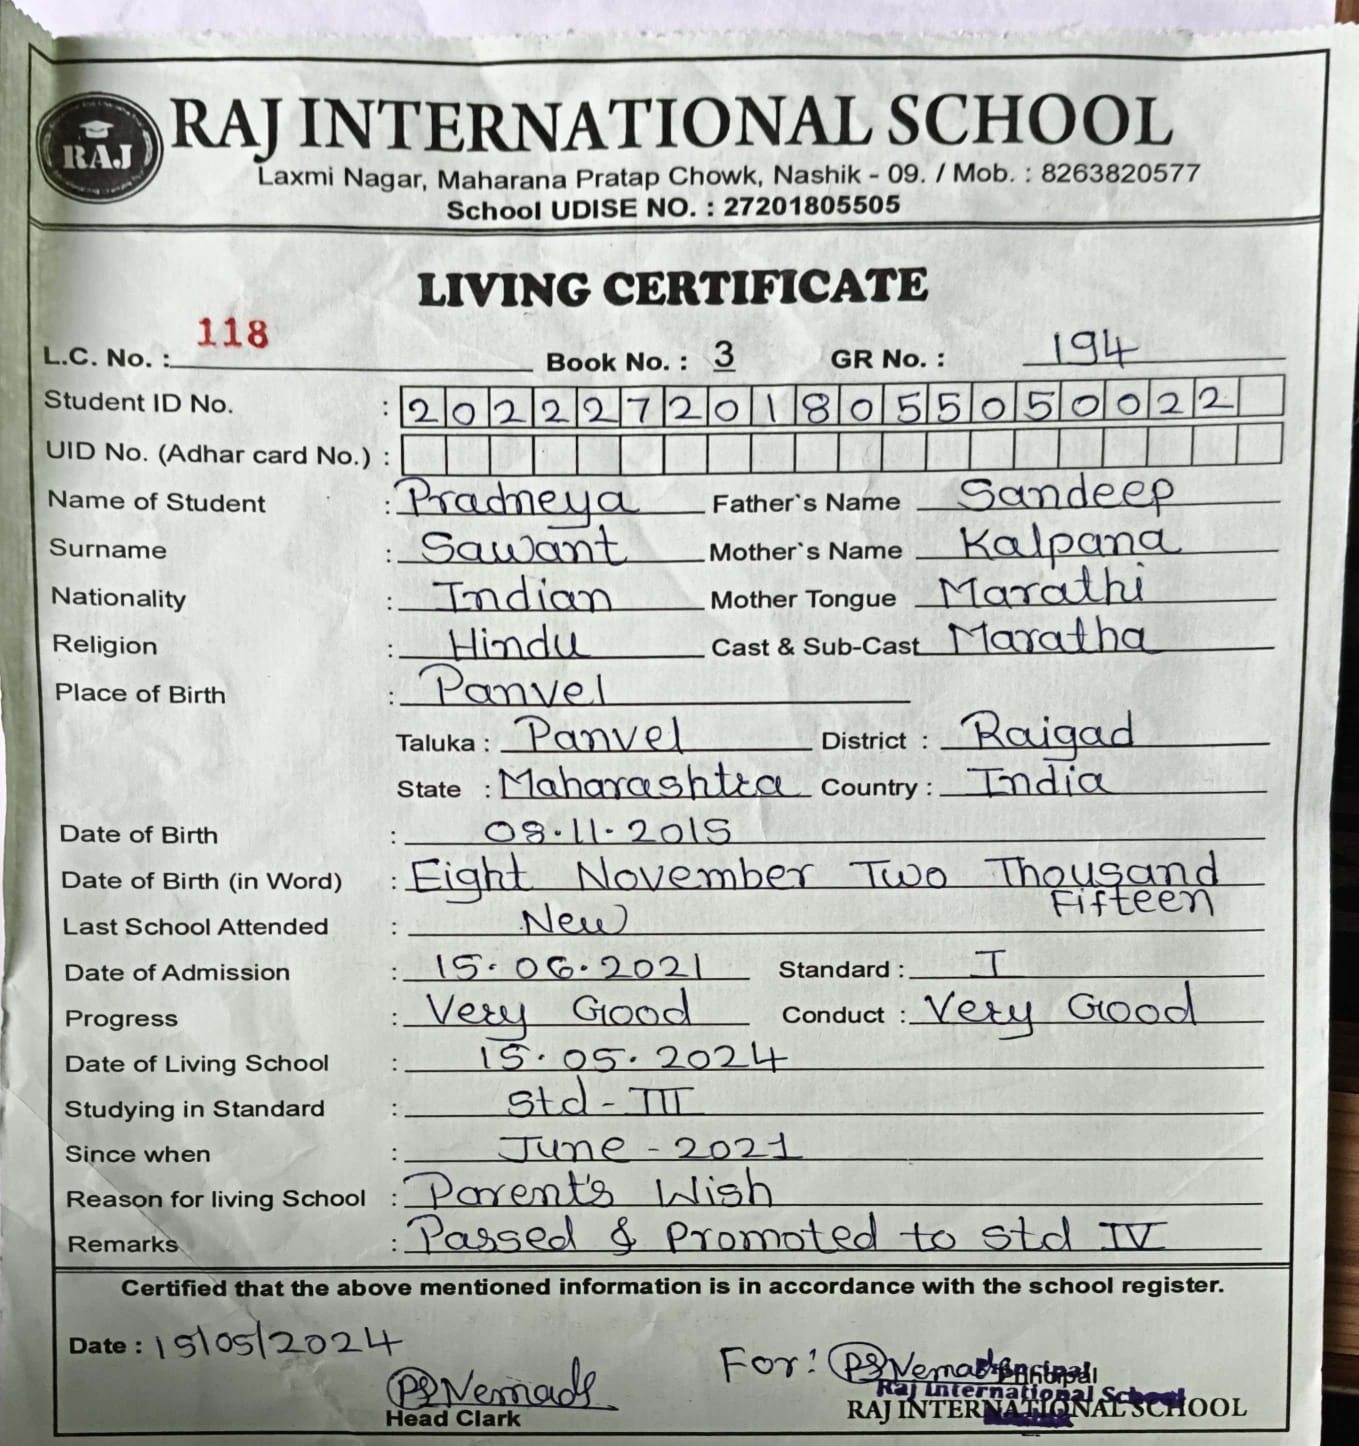 RAJ
RAJ INTERNATIONAL SCHOOL
Laxmi Nagar, Maharana Pratap Chowk, Nashik - 09. / Mob. : 8263820577
School UDISE NO. : 27201805505
LIVING CERTIFICATE
L.C. No. : 118 Book No. : 3 GR No. : 194
Student ID No. : 2022272018055050022
UID No. (Adhar card No.) :
Name of Student : Pradneya Father`s Name Sandeep
Surname : Sawant Mother`s Name Kalpana
Nationality : Indian Mother Tongue Marathi
Religion : Hindu Cast & Sub-Cast Maratha
Place of Birth : Panvel
Taluka : Panvel District : Raigad
State : Maharashtra Country : India
Date of Birth : 08.11.2015
Date of Birth (in Word) : Eight November Two Thousand
Fifteen
Last School Attended : New
Date of Admission : 15.06.2021 Standard : I
Progress : Very Good Conduct : Very Good
Date of Living School : 15.05.2024
Studying in Standard : Std - III
Since when : June - 2021
Reason for living School : Parent's Wish
Remarks : Passed & Promoted to Std IV
Certified that the above mentioned information is in accordance with the school register.
Date : 15/05/2024
For : Principal
Raj International School
Head Clark RAJ INTERNATIONAL SCHOOL